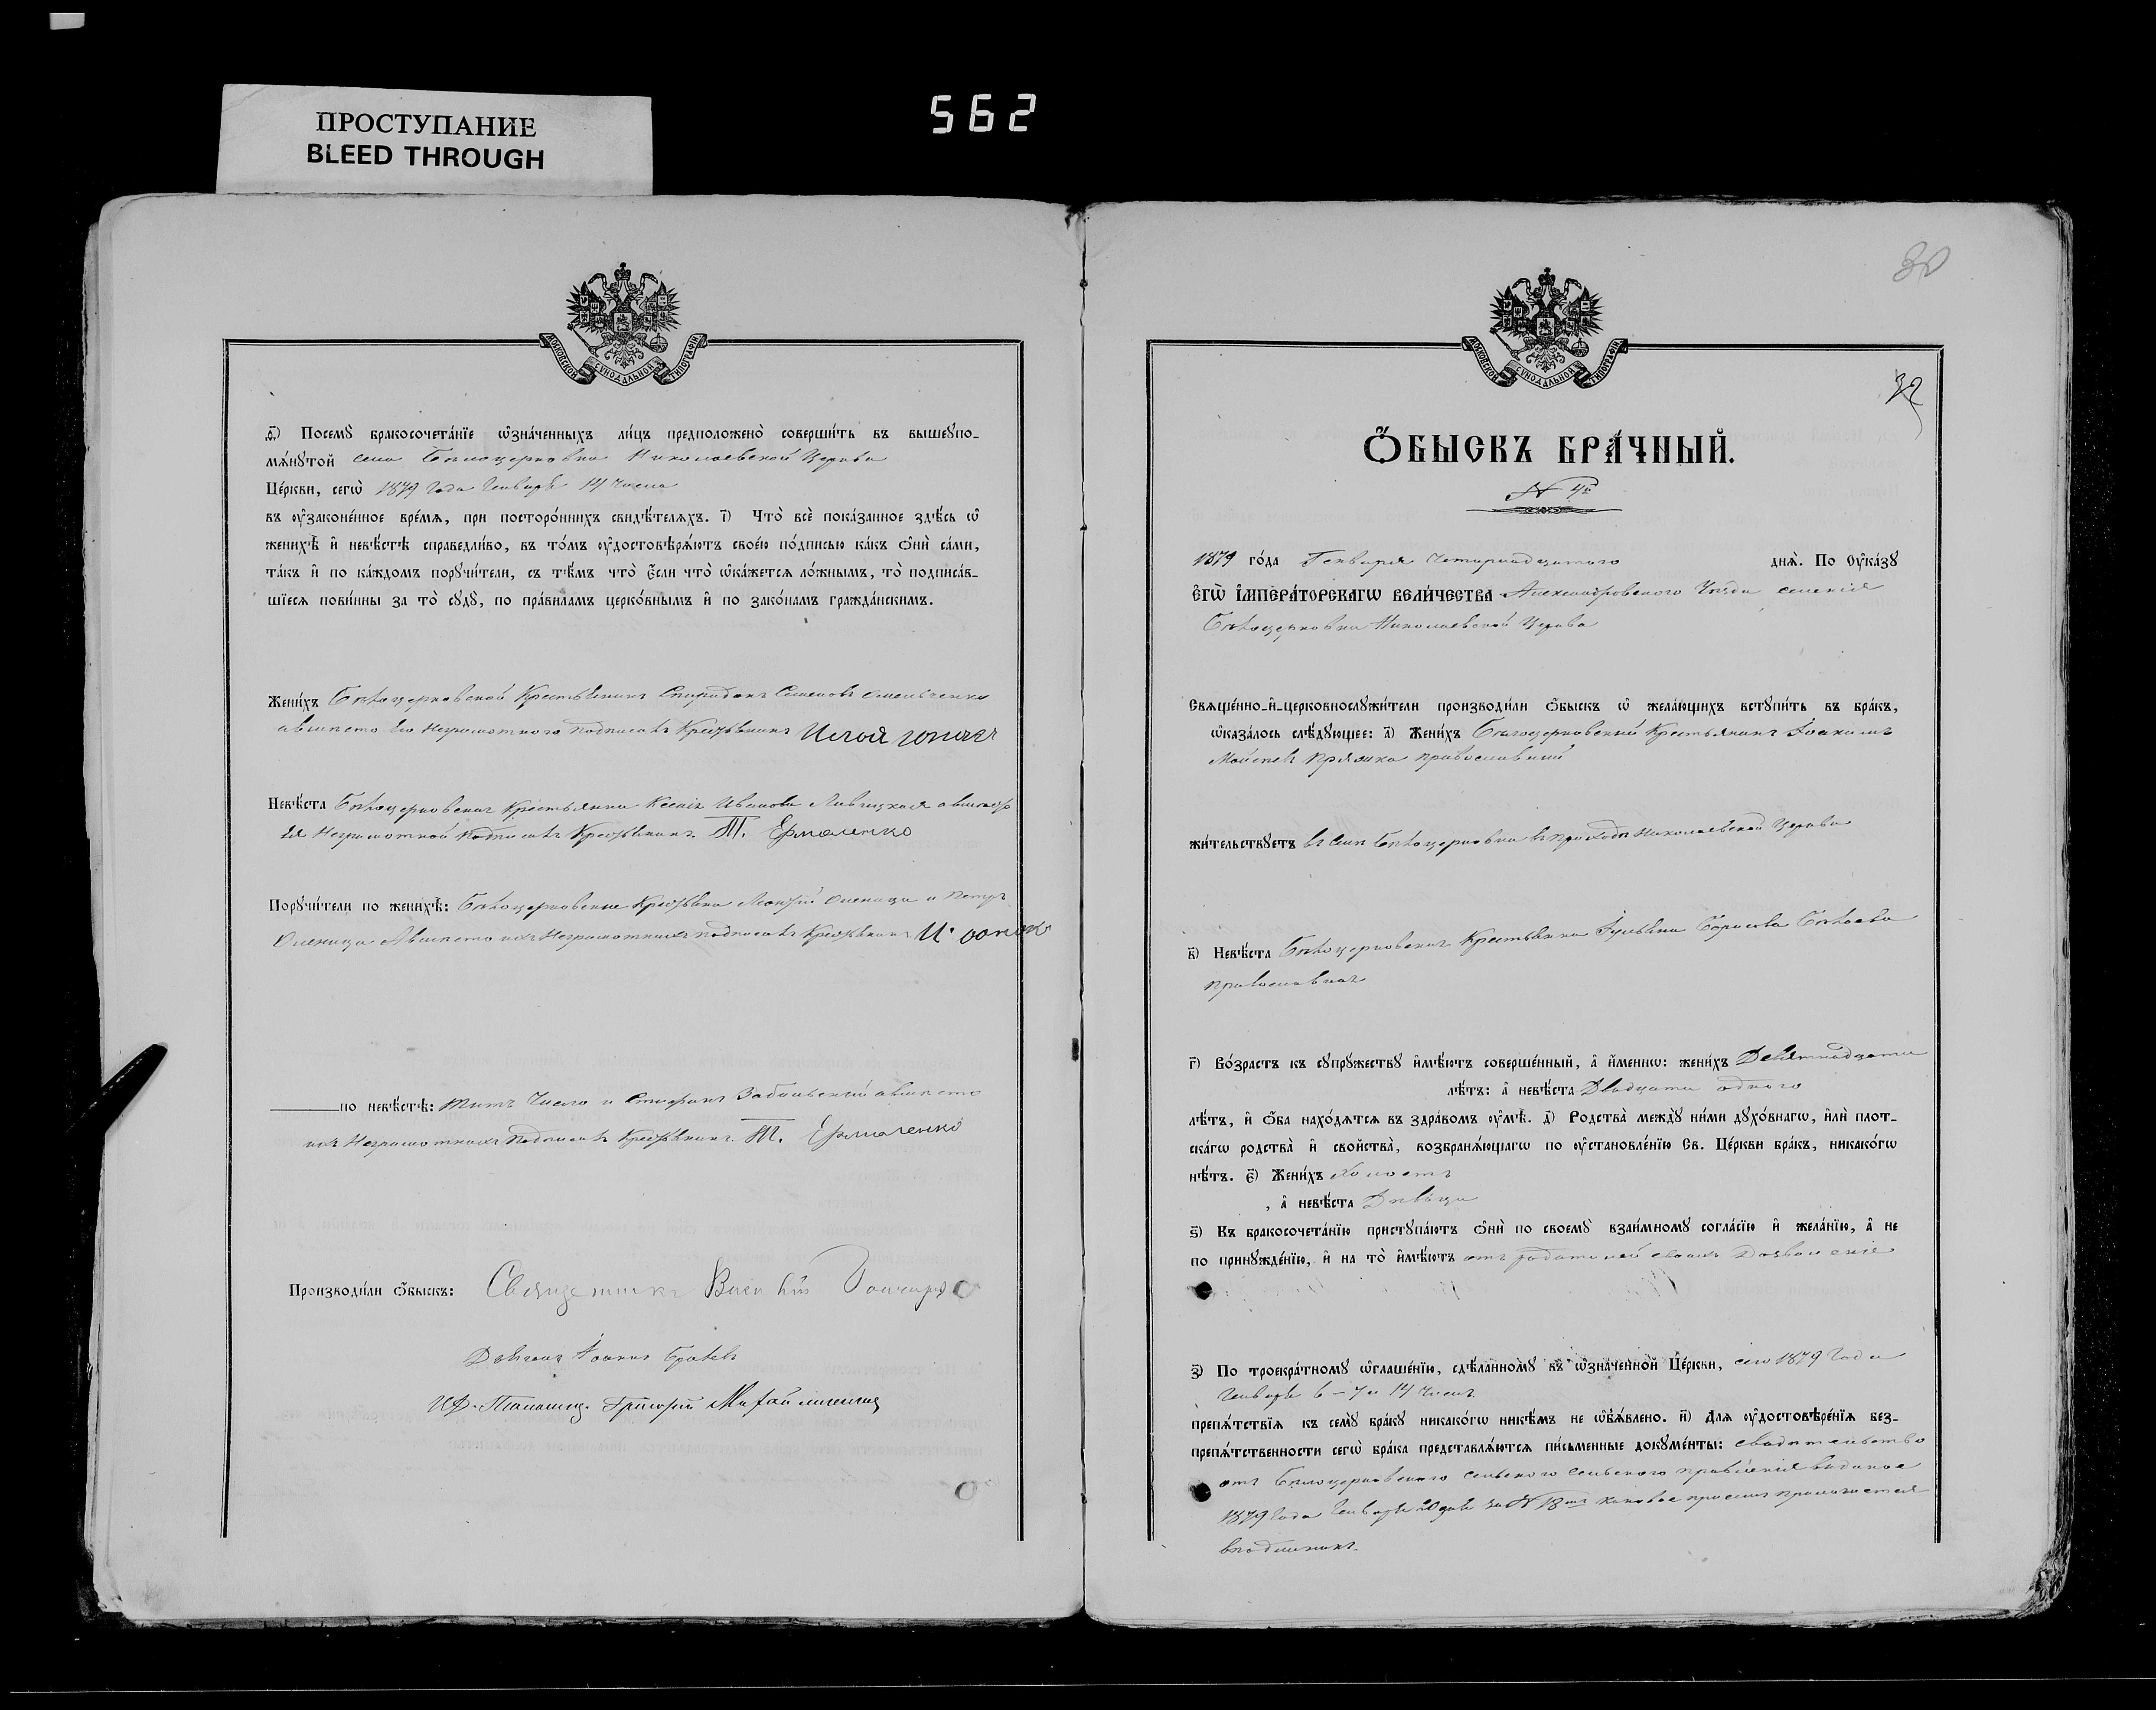 562
ПРОСТУПАНИЕ
BLEED THROUGH
МОСКОВСКОЙ СУНОДАЛЬНОЙ ТИПОГРАФІИ
Посемꙋ̀ бракосочета́нїе ѡ҆зна́ченныхъ ли́цъ предположено̀ соверши́ть въ вышеꙋпо-
мѧ́нꙋтой села Белоцерковки Николаевской Церкви
Це́ркви, сегѡ̀ 1879 года Генваря 14 числа
въ оу҆законе́нное вре́мѧ, при посторо́ннихъ свидѣ́телѧхъ. і҃) Что̀ всѐ пока́занное здѣ́сь ѡ҆
женихѣ̀ и҆ невѣ́стѣ справедли́во, въ то́мъ оу҆достовѣрѧ́ютъ свое́ю по́дписью ка́къ ѻ҆нѝ са́ми,
та́къ и҆ по ка́ждомъ порꙋчи́тели, съ тѣ́мъ что̀ є҆́сли что̀ ѡ҆ка́жетсѧ ло́жнымъ, то̀ подписа́в-
шїесѧ пови́нны за то̀ сꙋдꙋ̀, по пра́виламъ церко́внымъ и҆ по зако́намъ гражда́нскимъ.
Жени́хъ Бѣлоцерковской Крестьянинъ Спиридонъ Семеновъ Омельченко
авместо его неграмотного подписалъ Крестьянинъ
Невѣ́ста Бѣлоцерковская Крестьянка Ксенія Иванова
ея неграмотной подписалъ Крестьянинъ Т. Ермоленко
Порꙋчи́тели по женихѣ̀: Бѣлоцерковские Крестьяне Олепица и Петръ
Олепица Авместо ихъ неграмотныхъ подписалъ Крестьянинъ
по невѣ́стѣ: Титъ и Стефанъ Забельский авместо
ихъ неграмотныхъ подписалъ Крестьянинъ Т. Ермоленко
Производи́ли ѻ҆́быскъ: Священникъ Гончаро
Дьяконъ Іоаннъ
ИД. Псаломщ. Григорій
30
32
МОСКОВСКОЙ СУНОДАЛЬНОЙ ТИПОГРАФІИ
Ѻ҆́БЫСКЪ БРА́ЧНЫЙ.
№ 4й
1879 го́да Генваря Четырнадцатого днѧ̀. По Оу҆ка́зꙋ
Є҆ГѠ̀ І҆МПЕРА́ТОРСКАГѠ ВЕЛИ́ЧЕСТВА Александровского Уезда селенія
Бѣлоцерковки Николаевской Церкви
Свѧще́нно-и҆-церковнослꙋжи́тели производи́ли ѻ҆́быскъ ѡ҆ жела́ющихъ встꙋпи́ть въ бра́къ,
ѡ҆каза́лось слѣ́дꙋющее: а҃) Жени́хъ Белоцерковский Крестьянинъ Іоакимъ
православный
жи́тельствꙋетъ въ селе Бѣлоцерковки въ приходе Николаевской Церкви
в҃) Невѣ́ста Бѣлоцерковская Крестьянка Іульяна Борисова Бѣлаева
православная
г҃) Во́зрастъ къ сꙋпрꙋ́жествꙋ и҆мѣ́ютъ соверше́нный, а҆ и҆́меннѡ: жени́хъ Девятнадцати
лѣ́тъ: а҆ невѣ́ста Двадцати одного
лѣ́тъ, и҆ ѻ҆́ба нахо́дѧтсѧ въ здра́вомъ оу҆мѣ̀. д҃) Родства̀ междꙋ̀ ни́ми дꙋхо́внагѡ, и҆лѝ плот-
ска́гѡ родства̀ и҆ свойства̀, возбранѧ́ющагѡ по оу҆становле́нїю Св. Це́ркви бра́къ, никако́гѡ
нѣ́тъ. є҃) Жени́хъ Холостъ
, а҆ невѣ́ста Дѣвица
ѕ҃) Къ бракосочета́нїю пристꙋпа́ютъ ѻ҆нѝ по своемꙋ̀ взаи́мномꙋ согла́сїю и҆ жела́нїю, а҆ не
по принꙋжде́нїю, и҆ на то̀ и҆мѣ́ютъ отъ родителей своихъ Дозволение
з҃) По троекра́тномꙋ ѡ҆глаше́нїю, сдѣ́ланномꙋ въ ѡ҆зна́ченной Це́ркви, сего 1879 Года
Генваря 6 – 7 и 14 числъ
препѧ́тствїѧ къ семꙋ̀ бра́кꙋ никако́гѡ никѣ́мъ не ѡ҆бъѧ́влено. и҃) Длѧ оу҆достовѣре́нїѧ без-
препѧ́тственности сегѡ̀ бра́ка представлѧ́ютсѧ пи́сьменные докꙋме́нты: свидетельство
отъ Белоцерковского сельского сельского правления виданое
1879 Года Генваря за № 13мъ каковое присемъ прилагается
вподлинике.